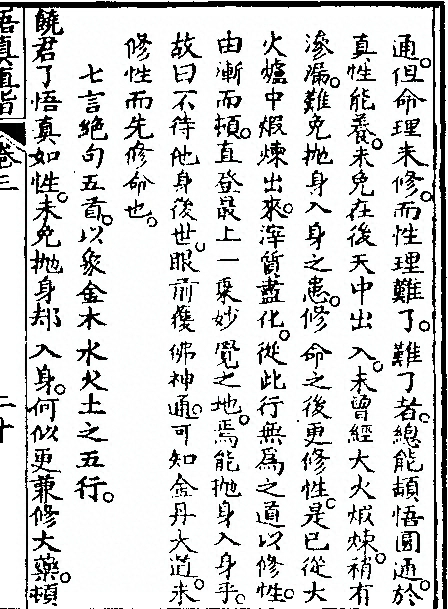 通。但命理未修。而性理難了。難了者。總能頓悟圓通於
真性能養。未免在後天中出入。未曾經大火煅煉。稍有
滲漏。難免拋身入身之患。修命之後更修性。是已從大
火爐中煅煉出來。滓質盡化。從此行無為之道以修性。
由漸而頓。直登最上一乘妙覺之地。焉能拋身入身乎。
故曰不待他身後世。眼前獲佛神通。可知金丹大道未
修性而先修命也。
七言絕句五首。以象金木水火土之五行。
饒君了悟真如性。未免拋身却入身。何似更兼修大藥。頓
悟真直指 卷三 二十